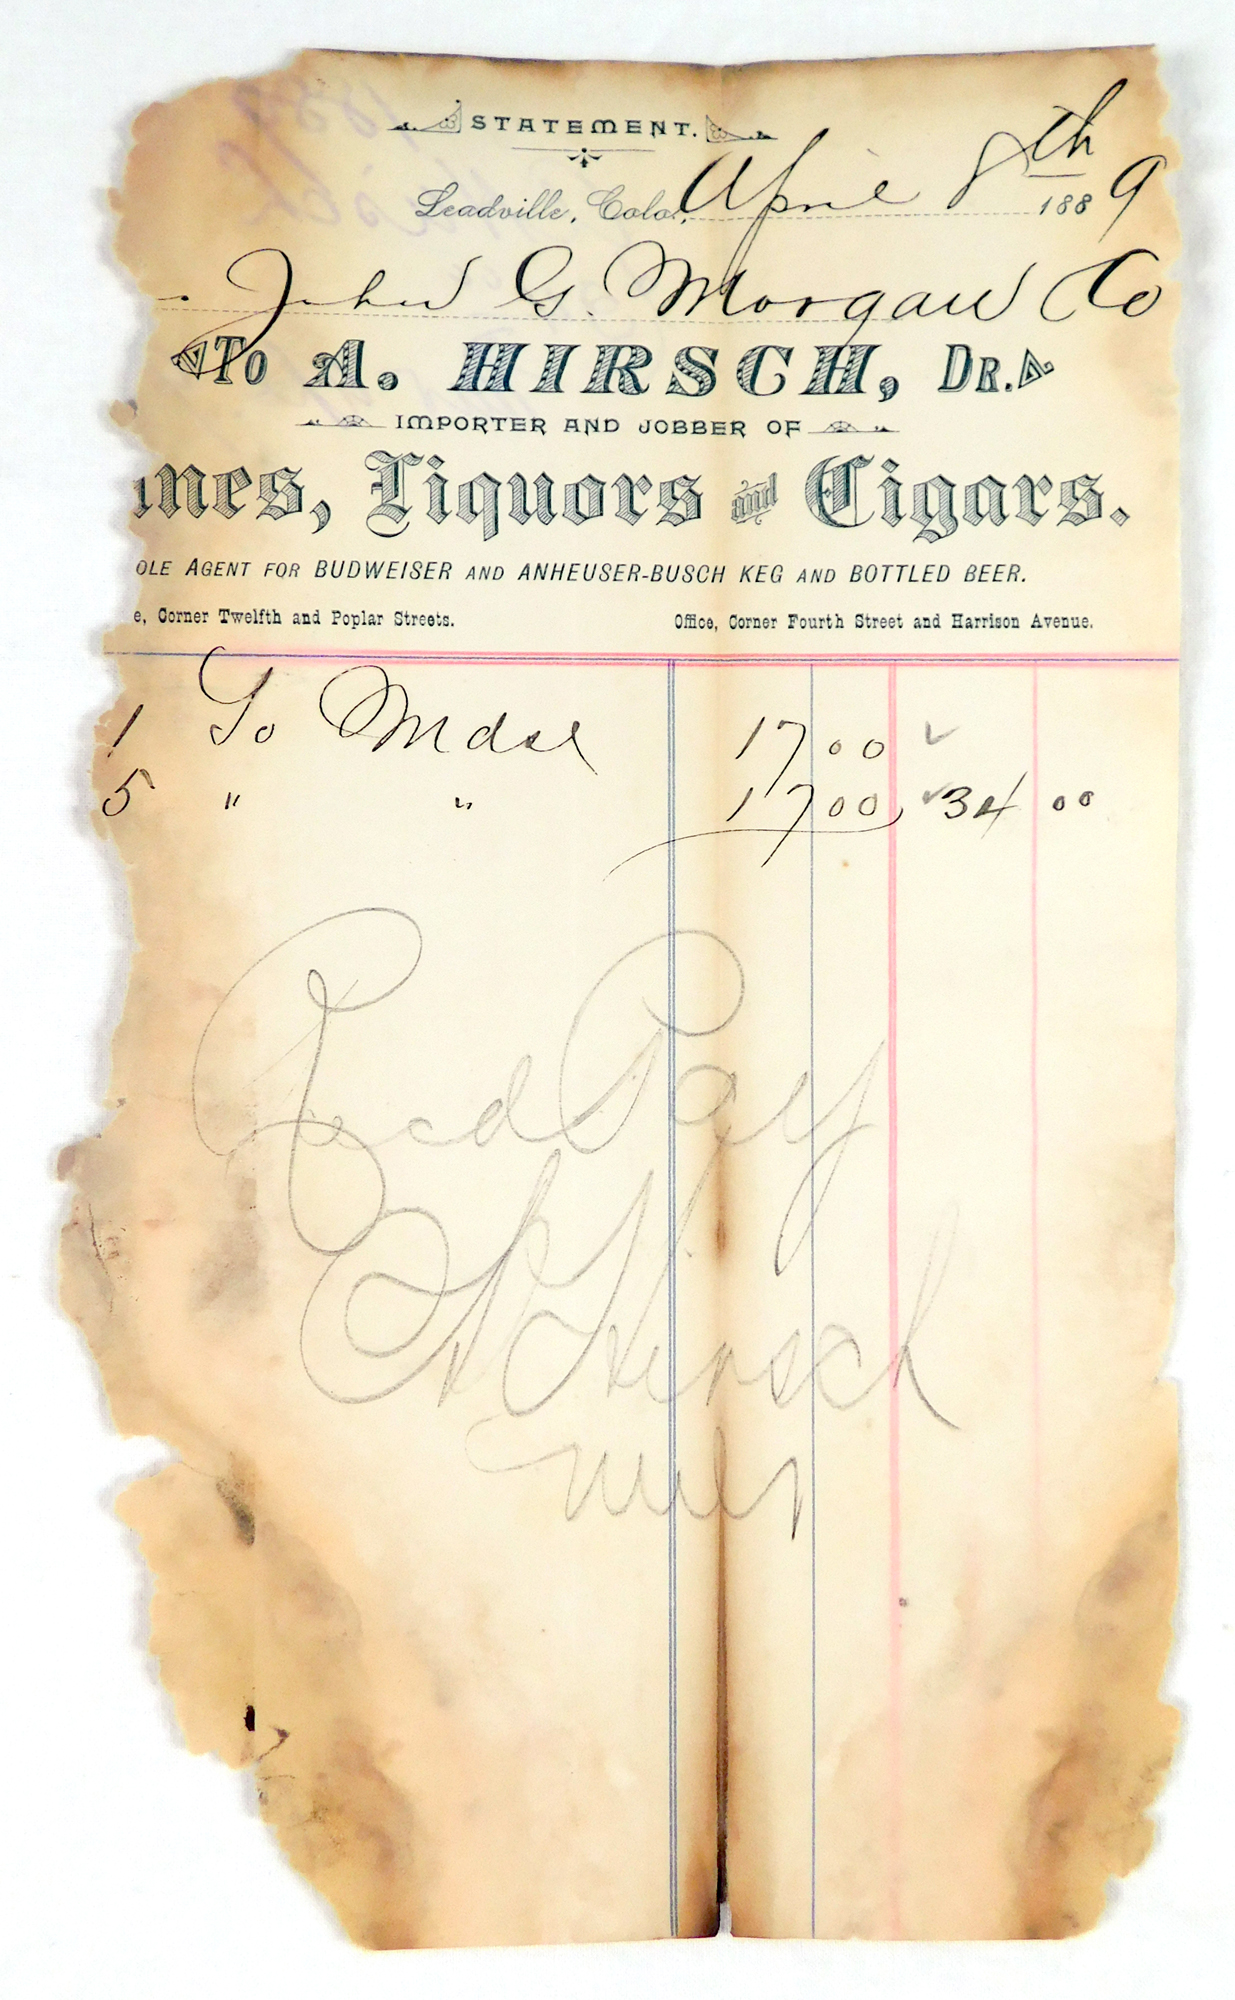 STATEMENT.
Leadville, Colo., April 8th 1889
John G. Morgan Co
To A. HIRSCH, DR.
IMPORTER AND JOBBER OF
ines, Liquors and Cigars.
OLE AGENT FOR BUDWEISER AND ANHEUSER-BUSCH KEG AND BOTTLED BEER.
e, Corner Twelfth and Poplar Streets. Office, Corner Fourth Street and Harrison Avenue.
1 To Mdse 17 00
5 " " 17 00 34 00
Recd Pay
A Hirsch